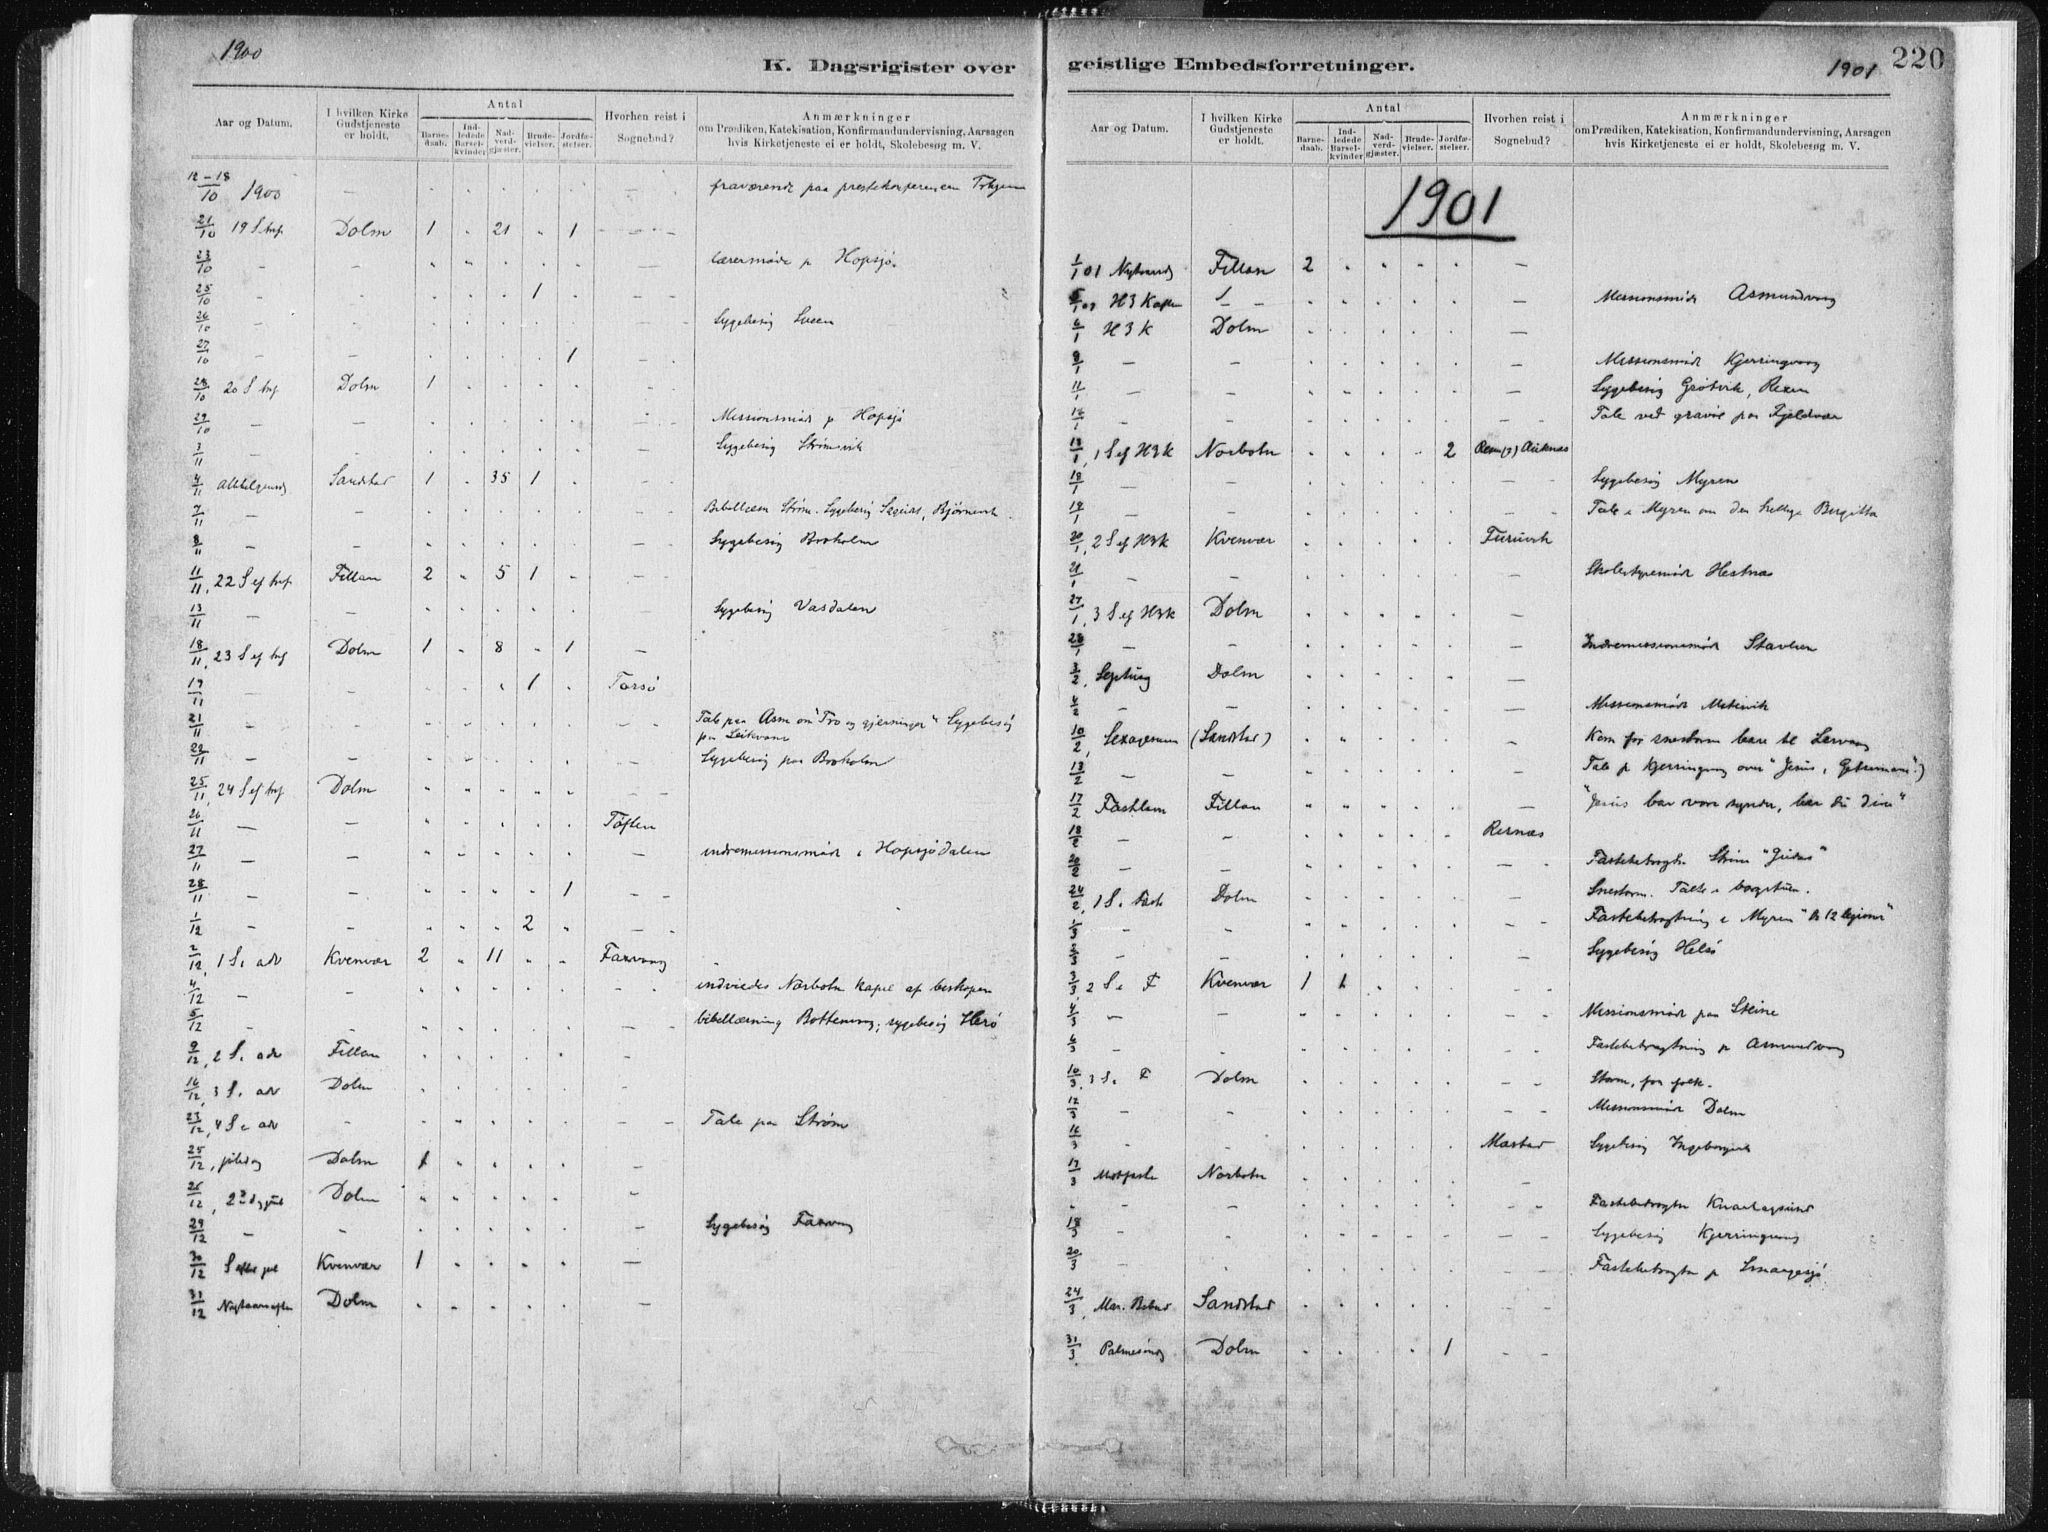 1900
K. Dagsrigister over
Aar og Datum.
I hvilken Kirke Gudstjeneste er holdt.
Antal
Barne-daab.
Ind-ledede Barsel-kvinder
Nad-verd-gjæster.
Brude-vielser.
Jordfæ-stelser.
Hvorhen reist i Sognebud?
Anmærkninger
om Prædiken, Katekisation, Konfirmandundervisning, Aarsagen
hvis Kirketjeneste ei er holdt, Skolebesøg m. V.
12-18/10 1900 — fraværende paa prestekonferencen
21/10 19 S Dolm 1 . 21 . 1 —
23/10 — — lærermøde p Hopsjø.
25/10 — — 1
26/10 — — Sygebesøg Sveen
27/10 — — 1
28/10 20 S Dolm 1
29/10 — — Missionsmøde p Hopsjø
3/11 — — Sygebesøg Strømsvik
4/11 Sandstad 1 . 35 1 . —
7/11 — — Sygebesøg Bjørnevik
8/11 — — Sygebesøg Boxholm
11/11, 22 S ef Fillan 2 . 5 1 . —
13/11 — — Sygebesøg Vasdalen
18/11, 23 S ef Dolm 1 . 8 . 1 —
19/11 — — 1 . Tarsø
21/11 — — Tale paa Asm om "Tro og gjerninger" Sygebesøg
paa Leikvam
— — Sygebesøg paa Boxholm
25/11, 24 S ef Dolm
26/11 — — Tøften
27/11 — — indremissionsmøde i Hopsjødalen
28/11 — — 1
1/12 — — 2
2/12, 1 S. adv Kvenvær 2 . 11 . .
4/12 — — indviedes Norbotn kapel af biskopen
5/12 — — sygebesøg Herø
9/12, 2 S. adv Fillan —
16/12, 3 S. adv Dolm
23/12, 4 S. adv — Tale paa Strøm
25/12, juledag Dolm 1 —
26/12, Dolm —
29/12 — — Sygebesøg
30/12 S efter jul Kvenvær 1 —
31/12 Nytaarsaften Dolm —
geistlige Embedsforretninger.
1901
220
Aar og Datum.
I hvilken Kirke Gudstjeneste er holdt.
Antal
Barne-daab.
Ind-ledede Barsel-kvinder
Nad-verd-gjæster.
Brude-vielser.
Jordfæ-stelser.
Hvorhen reist i Sognebud?
Anmærkninger
om Prædiken, Katekisation, Konfirmandundervisning, Aarsagen
hvis Kirketjeneste ei er holdt, Skolebesøg m. V.
1901
1/1 01 Fillan 2 —
H3K — — Missionsmøde Asmundvaag
6/1 H3K Dolm —
— — Missionsmøde Kjerringvaag
11/1 — — Sygebesøg Grøtvik,
— — Tale ved gravøl paa Fjeldvær
13/1, 1 S ef H3K Norbotn 2
18/1 — — Sygebesøg Myren
19/1 — — Tale i Myren om den hellige Birgitta
20/1, 2 S ef H3K Kvenvær Furuvik
21/1 — — Skolestyremøde Hestnæs
27/1, 3 S ef H3K Dolm —
28/1 — — Indremissionsmøde
3/2, Septuag Dolm —
4/2 — — Missionsmøde
10/2, Sexagesima (Sandstad) Kom for snestorm bare til
13/2 — — Tale p Kjerringvaag over "Jesus i Getsemane".)
17/2 Fastelavn Fillan — "Jesus bar vore synder, bær du dine"
18/2 — — Rernæs
20/2 — — Fastebetragtn. Strøm "Judas"
24/2, 1 S. i Faste Dolm Snestorm.
1/3 — — Fastebetragtning i Myren "de 12 legioner"
— — Sygebesøg Helsø
3/3, 2 S. i F Kvenvær 1 1
4/3 — — Missionsmøde paa Steine
6/3 — — Fastebetragtning p Asmundvaag
10/3, 3 S. i F Dolm Storm, faa folk.
12/3 — — Missionsmøde Dolm
16/3 — — Mastad Sygebesøg
17/3 Midtfaste Norbotn
— Fastebetragtn Knarlagsund
18/3 — — Sygebesøg Kjerringvaag
20/3 — — Fastebetragtn p Smaagesjø
24/3, Mar. Bebud Sandstad
31/3, Palmesøndg Dolm 1